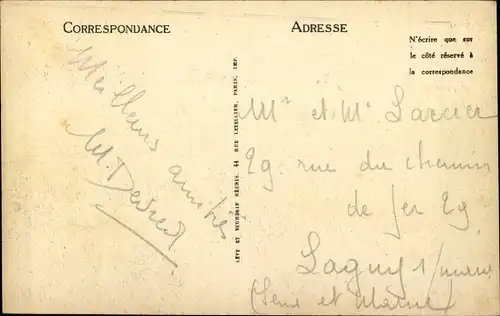 CORRESPONDANCE
ADRESSE
N'écrire que sur
le côté réservé à
la correspondance
Meilleurs amitiés
M.
LÉVY ET NEURDEIN RÉUNIS. 44 RUE LETELLIER, PARIS, IMP.
Mr et Me Larcier
29. rue du chemin
de fer 29
Lagny s/marne
(Seine et Marne)